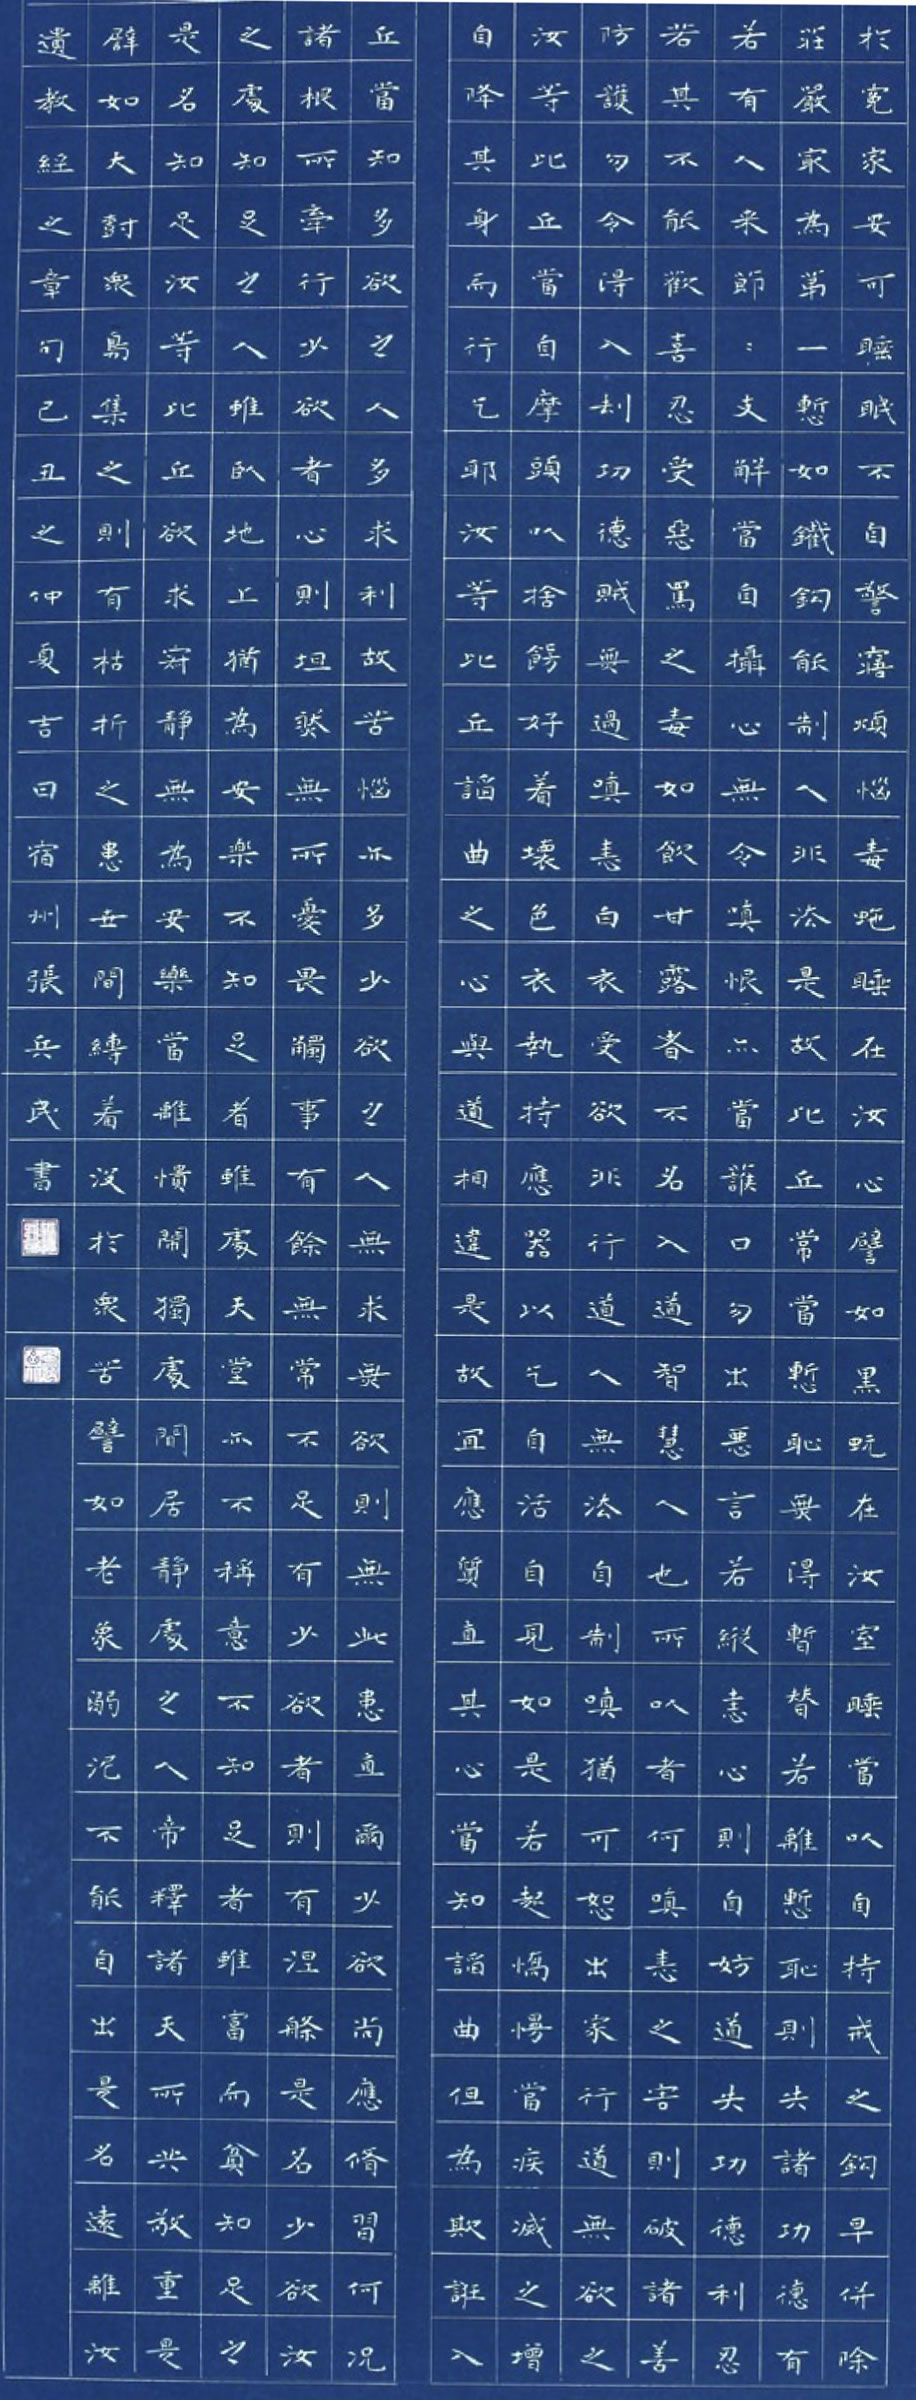 於寃家安可睡眠不自警寤煩惱毒虵睡在汝心譬如黑蚖在汝室睡當以自持戒之鈎早併除
莊嚴冣為第一慙如鐵鈎能制人非法是故比丘常當慙恥無得暫替若離慙恥則失諸功德有
若有人来節：支解當自攝心無令嗔恨亦當護口勿出惡言若縱恚心則自妨道失功德利忍
若其不能歡喜忍受惡罵之毒如飲甘露者不名入道智慧人也所以者何嗔恚之害則破諸善
防護勿令得入刦功德賊無過嗔恚白衣受欲非行道人無法自制嗔猶可恕出家行道無欲之
汝等比丘當自摩頭以捨餙好着壞色衣執持應器以乞自活自見如是若起憍慢當疾滅之增
自降其身而行乞耶汝等比丘諂曲之心與道相違是故宜應質直其心當知諂曲但為欺誑入
丘當知多欲之人多求利故苦惱亦多少欲之人無求無欲則無此患直爾少欲尚應脩習何况
諸根所牽行少欲者心則坦然無所憂畏觸事有餘無常不足有少欲者則有涅槃是名少欲汝
之處知足之人雖臥地上猶為安樂不知足者雖處天堂亦不稱意不知足者雖富而貧知足之
是名知足汝等比丘欲求寂静無為安樂當離憒閙獨處閒居静處之人帝釋諸天所共敬重是
辟如大樹衆鳥集之則有枯折之患世間縛着沒於衆苦譬如老象溺泥不能自出是名遠離汝
遺教經之章句己丑之仲夏吉日宿州張兵民書